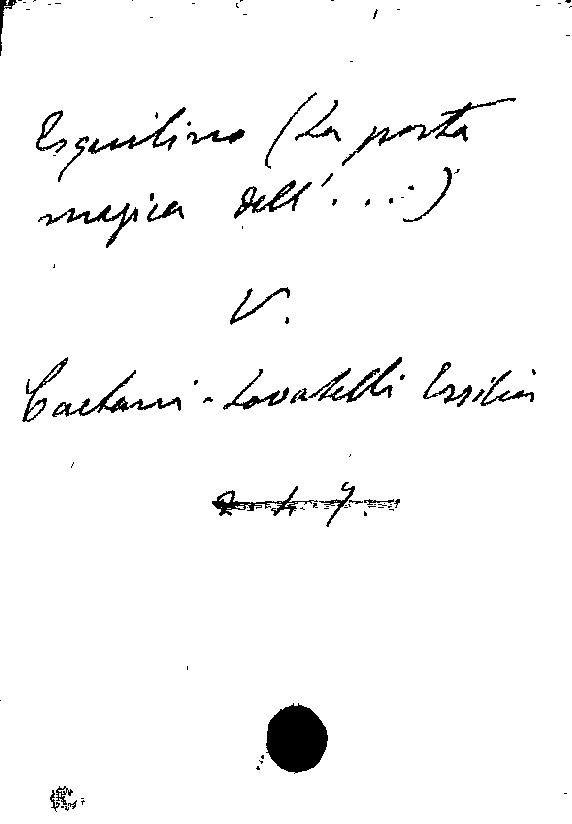 Esquilino (La porta
magica dell'....)
V.
Caetani-Lovatelli Ersilia